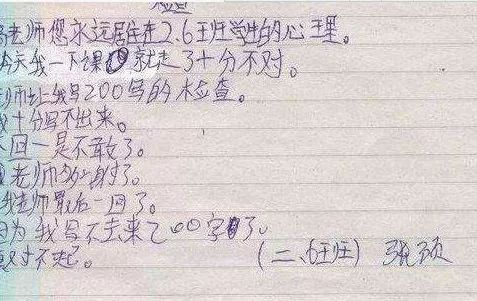 检查
老师您永远居住在2.6王班学生的心王里。
今天我一下课就走了3十分不对。
老师让我写200写的检查。
我十分写不出来。
下回一是不敢了。
老师多射了。
我老师最后一回了。
因为我写不去来200字了。
对不起。
(二、6王班) 张